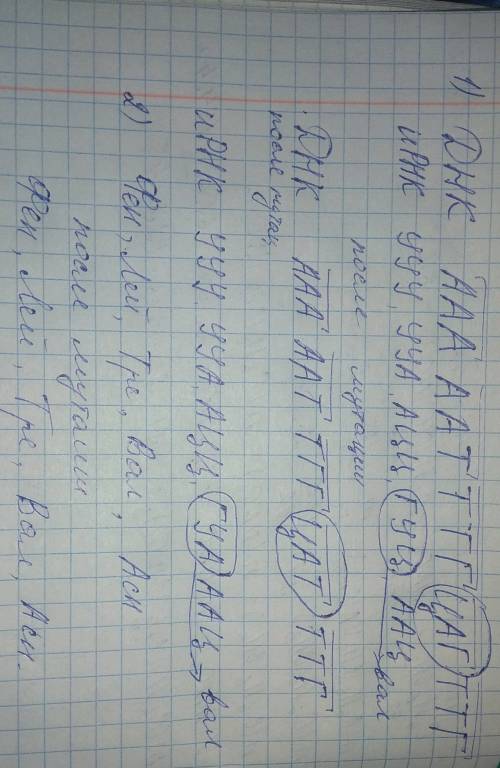 1) ДНК ААА ААТ ТГГ ЦАГ ТТГ
иРНК УУУ, УУА, АЦЦ, ГУЦ, ААЦ → вал
после мутации
ДНК ААА ААТ ТГГ ЦАТ ТТГ
после мутац.
иРНК УУУ УУА, АЦЦ, ГУА, ААЦ → вал
2) Фен, Лей, Тре, Вал, Асн
после мутации
Фен, Лей, Тре, Вал, Асн.